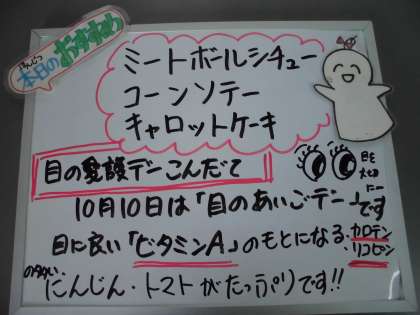 本日のおすすめ
ミートボールシチュー
コーンソテー
キャロットケーキ
目の愛護デーこんだて
目を
大切
に―
10月10日は「目のあいごデー」です
目に良い「ビタミンA」のもとになる、カロテン
リコピン
の多い、
にんじん・トマトがたっぷりです!!